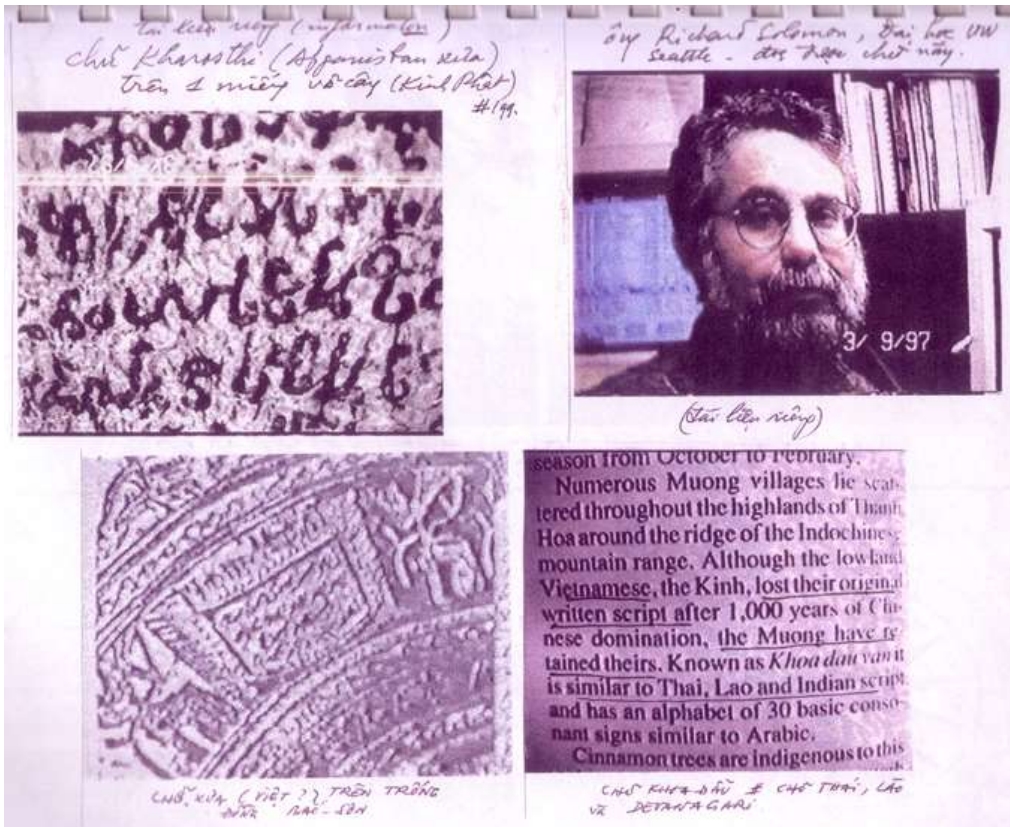 tài liệu riêng (information)
chữ Kharosthi (Afganistan xưa)
trên 1 miếng vỏ cây (Kinh Phật)
#199.
ông Richard Solomon, Đại học UW
Seattle - đọc được chữ này.
3/ 9/97
(tài liệu riêng)
season from October to February.
Numerous Muong villages lie scat-
tered throughout the highlands of Thanh
Hoa around the ridge of the Indochinese
mountain range. Although the lowland
Vietnamese, the Kinh, lost their original
written script after 1,000 years of Chi-
nese domination, the Muong have re-
tained theirs. Known as Khoa dau van it
is similar to Thai, Lao and Indian script
and has an alphabet of 30 basic conso-
nant signs similar to Arabic.
Cinnamon trees are indigenous to this
CHỮ XƯA (VIỆT ?) TRÊN TRỐNG
ĐỒNG BẮC-SƠN
CHỮ KHOA ĐẨU # CHỮ THÁI, LÀO
VÀ DEVANAGARI